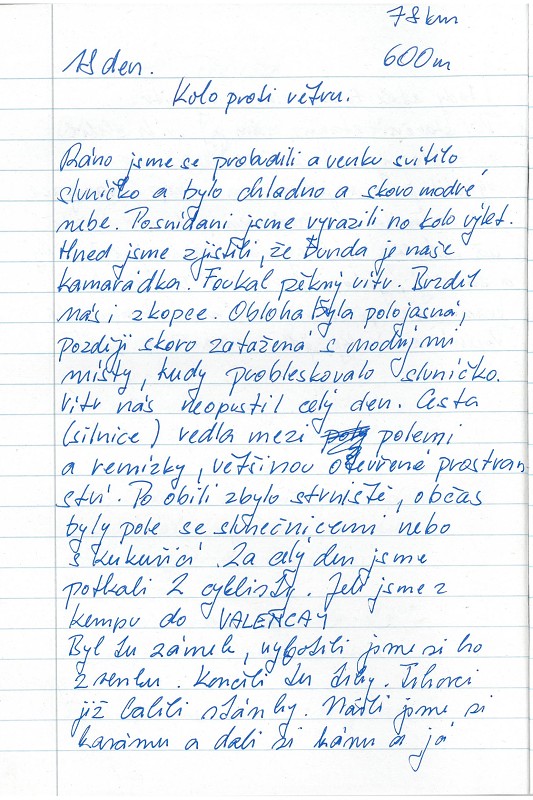 78 km
18 den. 600m
Kolo proti větru.
Ráno jsme se probudili a venku svítilo
sluníčko a bylo chladno a skoro modré
nebe. Posnídani jsme vyrazili na kolo výlet.
Hned jsme zjistili, že bunda je naše
kamarádka. Foukal pěkný vítr. Brzdil
nás i z kopce. Obloha byla polojasná,
později skoro zatažená s modrými
místy, kudy probleskovalo sluníčko.
Vítr nás neopustil celý den. Cesta
(silnice) vedla mezi polemi
a remízky, většinou otevřené prostran
ství. Po obilí zbylo strniště, občas
byly pole se slunečnicemi nebo
s kukuřicí. Za celý den jsme
potkali 2 cyklisty. Jeli jsme z
kempu do VALENCAY
Byl tu zámek, vyfotili jsme si ho
z venku. Končili tu trhy. Trhovci
již balili stánky. Našli jsme si
kavárnu a dali si kávu a já